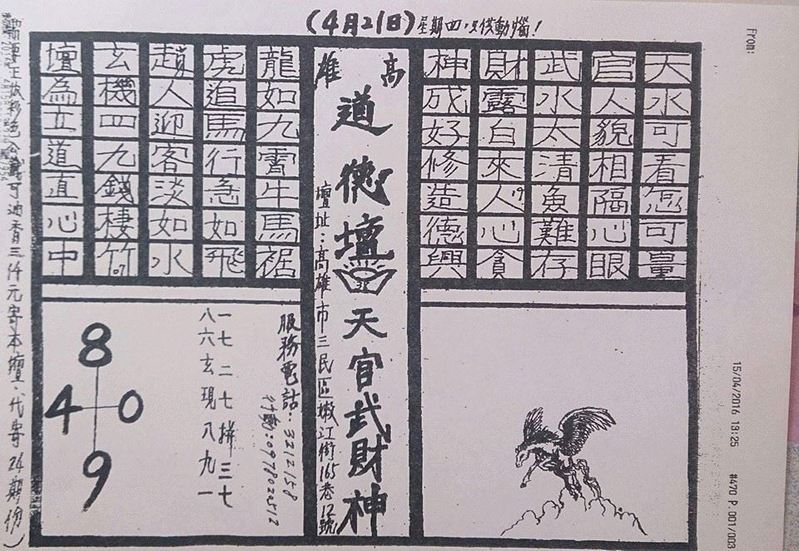 (4月21日)星期四,只供動腦!
From:
15/04/2016 13:25
#470 P.001/003
天水可看怎可量
官人貌相隔心眼
武水太清魚難存
財露白來人心貪
神成好修造德興
高雄
道德壇天官武財神
壇址:高雄市三民區嫩江街165巷12號
龍如九霄牛馬裾
虎追馬行急如飛
趙人迎客淡如水
玄機四九錢棲竹
壇為立道直心中
服務電話:3212158
行動:0978022512
一七二七拼三七
八六玄現八九一
8
4 0
9
可油香三仟元寄本壇,代寄24期份)